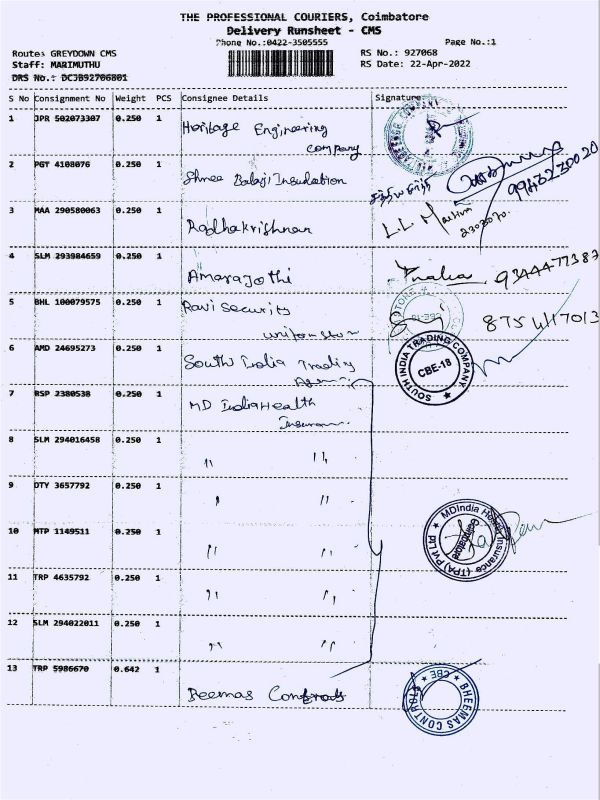 THE PROFESSIONAL COURIERS, Coimbatore
Delivery Runsheet - CMS
Phone No.:0422-3505555
Page No.:1
Route: GREYDOWN CMS
RS No.: 927068
Staff: MARIMUTHU
RS Date: 22-Apr-2022
DRS No.: DCJB92706801
S No Consignment No Weight PCS Consignee Details Signature
1 JPR 502073307 0.250 1 Heritage Engineering
company
2 PGT 4108076 0.250 1 Shree Balaji Insulation
3 MAA 290580063 0.250 1 Radhakrishnan
L.L
4 SLM 293984659 0.250 1 Amarajothi
9344477387
5 BHL 100079575 0.250 1 Ravi Security
8754417013
6 AMD 24695273 0.250 1 South India Trading
SOUTH INDIA TRADING COMPANY
CBE-18
7 RSP 2380538 0.250 1 MD India Health
8 SLM 294016458 0.250 1 " "
9 DTY 3657792 0.250 1 " "
10 MTP 1149511 0.250 1 " "
MDIndia Health Insurance (TPA) Pvt Ltd
Coimbatore
11 TRP 4635792 0.250 1 " "
12 SLM 294022011 0.250 1 " "
13 TRP 5986670 0.642 1 Beemas
BHEEMAS CONTROLS
CBE